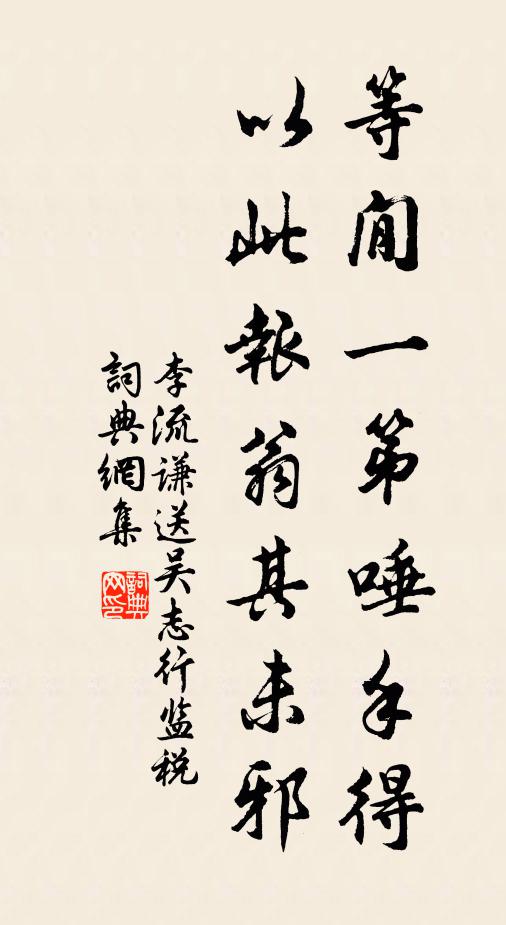 等閒一第唾手得
以此報翁其未邪
李流謙送吴志行监税
詞典網集
詞典網印